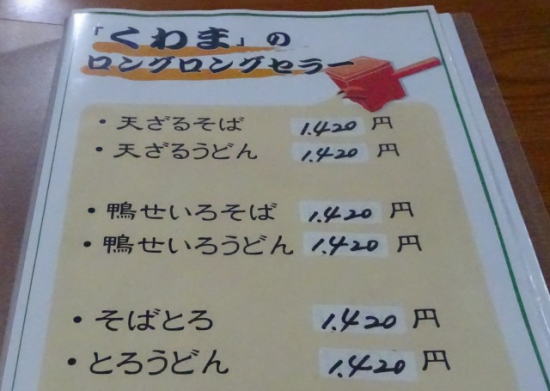 「くわま」の
ロングロングセラー
・天ざるそば 1.420円
・天ざるうどん 1.420円
・鴨せいろそば 1.420円
・鴨せいろうどん 1.420円
・そばとろ 1.420円
・とろうどん 1.420円